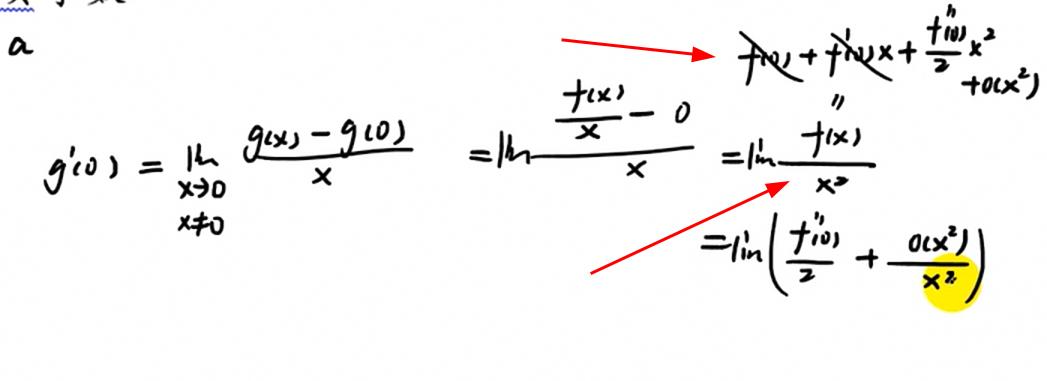 a
f(0) + f'(0)x + f''(0)/2 x² + o(x²)
g'(0) = lim x→0 x≠0 (g(x) − g(0))/x = lim (f(x)/x − 0)/x = lim f(x)/x²
= lim (f''(0)/2 + o(x²)/x²)